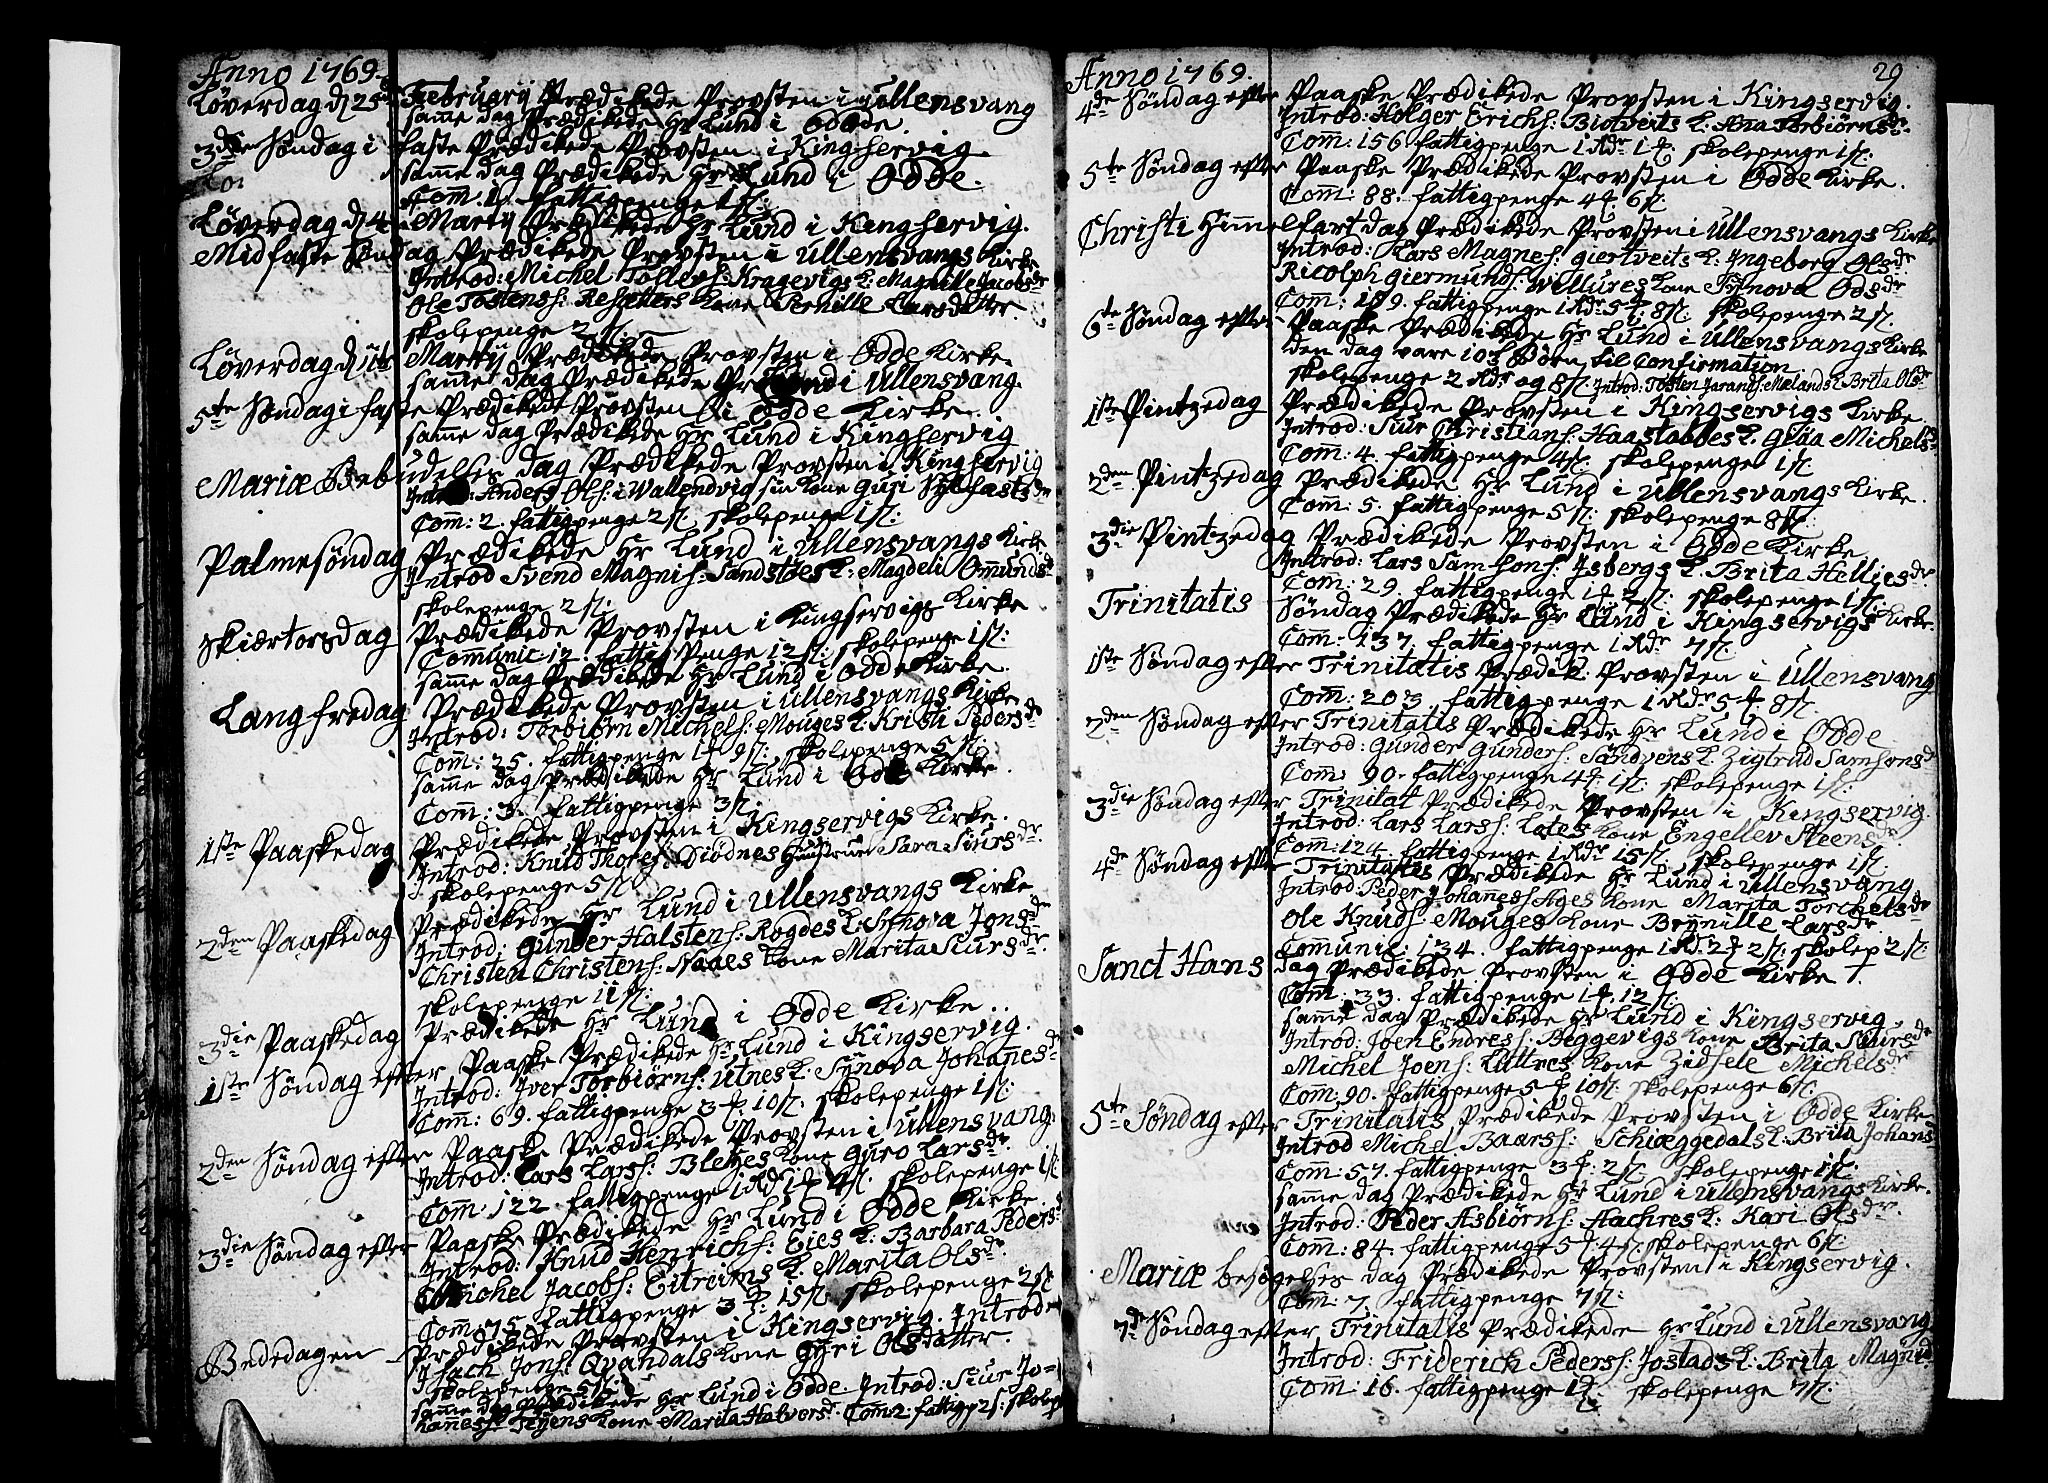 Anno 1769.
Løverdag d 25de February Prædikede Provsten i Ullensvang
samme dag Prædikede Hr Lund i Odde.
3die Søndag i faste Prædikede Provsten i Kingservig
samme dag Prædikede Hr Lund i Odde.
Com: 1. fattigpenge 1 s:
Løverdag d 4 Marty Prædikede Hr Lund i Kingservig.
Midfaste Søndag Prædikede Provsten i Ullensvangs Kirke
Introd: Michel Tollefs: Kragevigs K: Magnille Jacobsdr
Ole Tostens: Resætters Kone Pernille Larsdatter
skolepenge 2 s:
Løverdag d 11te Marty Prædikede Provsten i Odde Kirke.
samme dag Prædikede Hr Lund i Ullensvang.
5te Søndag i faste Prædikede Provsten i Odde Kirke.
samme dag Prædikede Hr Lund i Kingservig
Mariæ Bebudelses dag Prædikede Provsten i Kingservig
Introd: Anders Ols: i Wallendvig sin Kone Guri Sylfastsdr
Com̄: 2. fattigpenge 2 s: skolepenge 1 s:
Palmesøndag Prædikede Hr Lund i Ullensvangs Kirke
Introd Svend Magnis: Sandstøes K: Magdeli Omundsd
skolepenge 2 s:
Skiærtorsdag Prædikede Provsten i Kingservigs Kirke
Com̄unic 12. fattig Penge 12 s: skolepenge 1 s:
samme dag Prædikede Hr Lund i Odde Kirke.
Langfredag Prædikede Provsten i Ullensvangs Kirke
Introd: Torbiørn Michels: Mouges K: Kristi Pedersdr
Com̄: 25. fattigpenge 1 # 9 s: skolepenge 5 s:
samme dag Prædikede Hr Lund i Odde Kirke.
Com̄: 3. fattigpenge 3 s:
1ste Paaskedag Prædikede Provsten i Kingservigs Kirke.
Introd: Knud Thores: Diødnes Hustrue Sara Siursdr:
skolepenge 5 s:
2den Paaskedag Prædikede Hr Lund i Ullensvangs Kirke
Introd: Gunder Halstens: Rogdes K: Synova Jonsdr
Christen Christens: Naaes Kone Marita Siursdr.
skolepenge 11 s:
3die Paaskedag Prædikede Hr Lund i Odde Kirke
1ste Søndag efter Paaske Prædikede Hr Lund i Kingservig.
Introd: Iver Torbiørns: Utnes K: Synova Johanesdr
Com̄: 69. fattigpenge 3 # 10 s: skolepenge 1 s:
2den Søndag efter Paaske Prædikede Provsten i Ullensvang.
Introd: Lars Lars: Bleyes Kone Guro Larsdr.
Com̄: 122. fattigpenge 1 Rd 1 # s: skolepenge 1 s:
3die Søndag efter Paaske Prædikede Hr Lund i Odde Kirke.
Introd: Knud Henrichs: Eies K: Barbara Pedersd
Michel Jacobs: Eitreims K: Marita Olsdr.
Com̄: 75. fattigpenge 3 #: 15 s: skolepenge 2 s:
Bededagen Prædikede Provsten i Kingservig. Introd:
Isach Jons: Qvandals Kone Gyri Olsdatter.
skolepenge 5 s:
samme dag Prædikede Hr Lund i Odde. Introd: Siur Jo=
hanes: Kone Marita Halvorsd. Com̄: 2 fattigp 2 s: skolep
29
Anno 1769.
4de Søndag efter Paaske Prædikede Provsten i Kingservig.
Introd: Holger Erichs: Biotveits K: Ana Torbiørnsdr.
Com̄: 156 fattigpenge 1 Rdr 1 #. skolepenge 1 s:
5te Søndag efter Paaske Prædikede Provsten i Odde Kirke.
Com̄: 88. fattigpenge 4 # 6 s:
Christi Himmelfart dag Prædikede Provsten i Ullensvangs Kirke
Introd: Lars Magnes: Giertveits K: Ingeborg Olsdr
Ricolph Giermunds: Willures Kone Synova Odsdr
Com: 189. fattigpenge 1 Rdr 5 # 8 s: skolepenge 2 s:
6te Søndag efter Paaske Prædikede Hr Lund i Ullensvangs Kirke
den dag vare 103 Børn til Confirmation
skolepenge 2 Rdr og 8 s: Introd: Tosten Jarands: Mælands K Brita Olsdr
1ste Pintzedag Prædikede Provsten i Kingservigs Kirke.
Introd: Siur Christians: Haastabbes K: Giøa Michelsdr
Com: 4. fattigpenge 4 s: skolepenge 1 s:
2den Pintzedag Prædikede Hr Lund i Ullensvangs Kirke.
Com: 5. fattigpenge 5 s: skolepenge 8 s:
3die Pintzedag Prædikede Provsten i Odde Kirke
Introd: Lars Samsons: Isbergs K. Brita Helliesdr.
Com: 29. fattigpenge 1 # 2 s: skolepenge 1 s:
Trinitatis Søndag Prædikede Hr Lund i Kingservigs Kirke.
Com: 137. fattigpenge 1 Rdr 7 s:
1ste Søndag efter Trinitatis Prædik: Provsten i Ullensvang
Com: 203. fattigpenge 1 Rdr 5 # 8 s:
2den Søndag efter Trinitatis Prædikede Hr Lund i Odde
Introd: Gunder Gunders: Sandvens K Zigtrud Samsonsd
Com̄ 90. fattigpenge 4 # 1 s: skolepenge 1 s:
3die Søndag efter Trinitatt Prædikede Provsten i Kingservig.
Introd: Lars Lars: Lotes Kone Engellev Steensdr.
Com: 124. fattigpenge 1 Rdr 15 s: skolepenge 1 s:
4de Søndag efter Trinitatis Prædikede Hr Lund i Ullensvang
Introd Peder Johannes: Ages Kone Marita Torchelsdr
Ole Knuds: Mouges Kone Brynille Larsdr.
Com̄unic: 134. fattigpenge 1 Rd. 2 # 2 s: skolep 2 s:
Sanct Hans dag Prædikede Provsten i Odde Kirke †.
Com̄: 33. fattigpenge 1 # 12 s:
samme dag Prædikede Hr Lund i Kingservig
Introd: Joen Endres: Beggevigs Kone Brita Siursdr
Michel Joens: Luttres Kone Zidsele Michelsdr
Com̄: 90. fattigpenge 5 # 10 s: skolepenge 6 s:
5te Søndag efter Trinitatis Prædikede Provsten i Odde Kirke
Introd Michel Baars: Schiæggedals K: Brita Johansd
Com̄: 57. fattigpenge 3 #: 2 s: skolepenge 1 s:
samme dag Prædikede Hr Lund i Ullensvangs Kirke.
Introd: Peder Asbiørns: Hachres K: Kari Olsdr.
Com̄: 84. fattigpenge 5 #: 4 s: skolepenge 6 s:
Mariæ besøgelses dag Prædikede Provsten i Kingservig.
Com̄: 7. fattigpenge 7 s:
7de Søndag efter Trinitatis Prædikede Hr Lund i Ullensvang
Introd: Friderich Peders: Jostads K: Brita Magnid
Com̄: 16. fattigpenge 1 #: skolepenge 7 s: